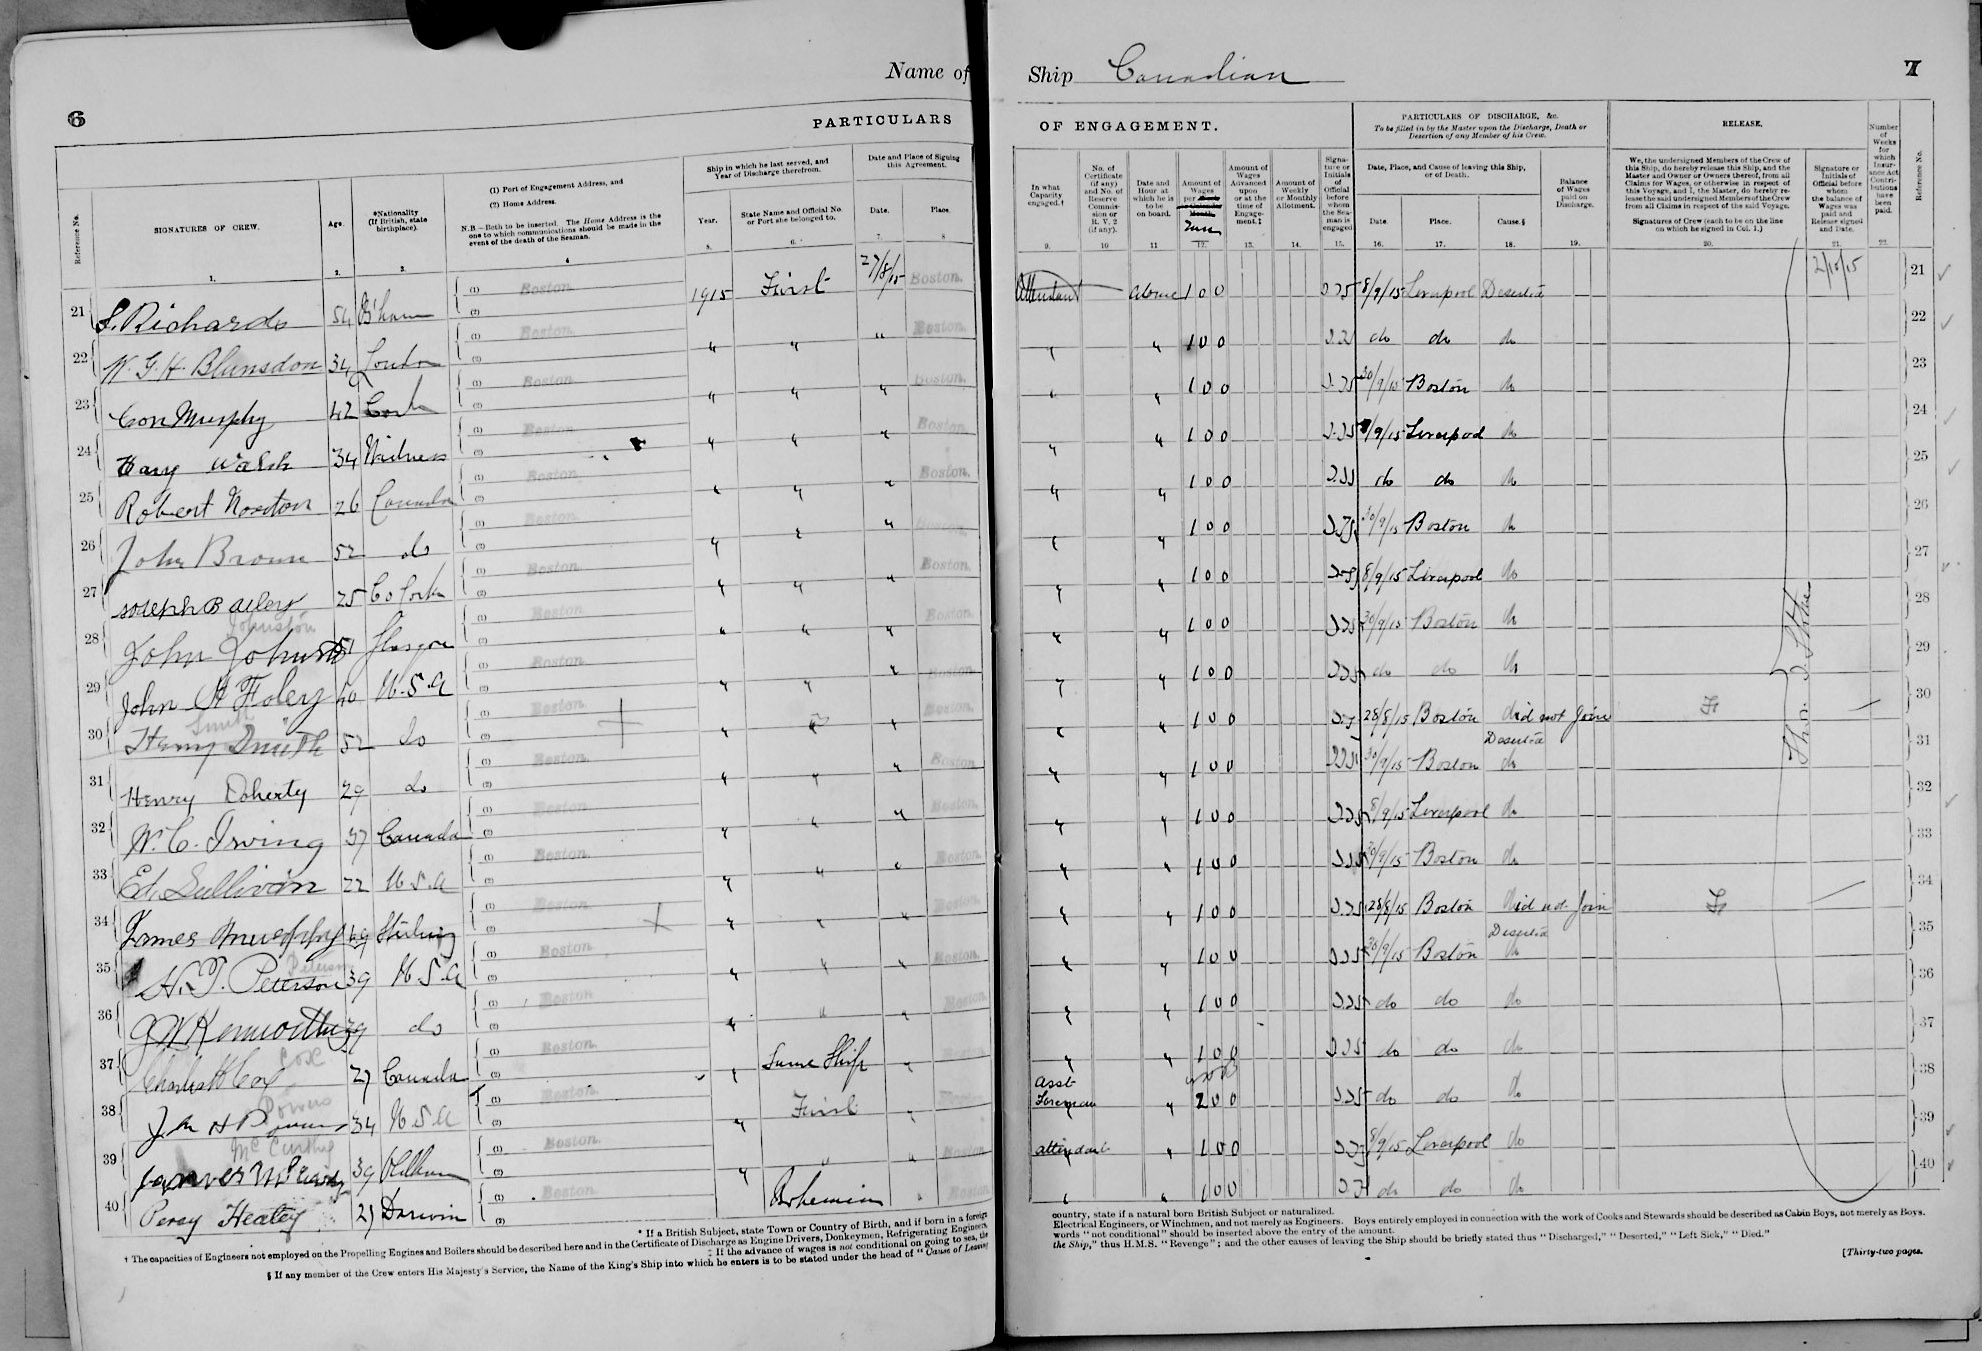 Name of Ship Canadian
6
7
PARTICULARS OF ENGAGEMENT.
PARTICULARS OF DISCHARGE, &c.
To be filled in by the Master upon the Discharge, Death or Desertion of any Member of his Crew.
RELEASE.
Reference No.
SIGNATURES OF CREW.
Age.
*Nationality (If British, state birthplace).
(1) Port of Engagement Address, and
(2) Home Address.
N.B.—Both to be inserted. The Home Address is the one to which communications should be made in the event of the death of the Seaman.
Ship in which he last served, and Year of Discharge therefrom.
Year.
State Name and Official No. or Port she belonged to.
Date and Place of Signing this Agreement.
Date.
Place.
In what Capacity engaged.†
No. of Certificate (if any) and No. of Reserve Commission or R. V. 2 (if any).
Date and Hour at which he is to be on board.
Amount of Wages per
Amount of Wages Advanced upon or at the time of Engagement.‡
Amount of Weekly or Monthly Allotment.
Signature or Initials of Official before whom the Seaman is engaged
Date, Place, and Cause of leaving this Ship, or of Death.
Date.
Place.
Cause.§
Balance of Wages paid on Discharge.
We, the undersigned Members of the Crew of this Ship, do hereby release this Ship, and the Master and Owner or Owners thereof, from all Claims for Wages, or otherwise in respect of this Voyage, and I, the Master, do hereby release the said undersigned Members of the Crew from all Claims in respect of the said Voyage.
Signatures of Crew (each to be on the line on which he signed in Col. 1.)
Signature or Initials of Official before whom the balance of Wages was paid and Release signed and Date.
Number of Weeks for which Insurance Act Contributions have been paid.
Reference No.
1. 2. 3. 4 5. 6. 7. 8 9. 10 11 12. 13. 14. 15. 16. 17. 18. 19. 20. 21. 22.
21 S. Richards 54 B'ham (1) Boston. (2) 1915 First 27/8/15 Boston. Attendant above 1 0 0 8/9/15 Liverpool Deserted 2/10/15 21
22 W. G. H. Blunsdon 34 London (1) Boston. (2) " " " Boston. " " 1 0 0 do do do 22
23 Con Murphy 42 Cork (1) Boston. (2) " " " Boston. " " 1 0 0 30/9/15 Boston do 23
24 Hary Walsh 34 Widness (1) Boston. (2) " " " Boston. " " 1 0 0 8/9/15 Liverpool do 24
25 Robert Norton 26 Canada (1) Boston. (2) " " " Boston. " " 1 0 0 do do do 25
26 John Brown 52 do (1) Boston. (2) " " " Boston. " " 1 0 0 30/9/15 Boston do 26
27 Joseph Bailey 25 Co Cork (1) Boston. (2) " " " Boston. " " 1 0 0 8/9/15 Liverpool do 27
Johnston
28 John Johnston 51 Glasgow (1) Boston. (2) " " " Boston. " " 1 0 0 30/9/15 Boston do 28
29 John A Foley 40 U.S.A (1) Boston. (2) " " " Boston. " " 1 0 0 do do do 29
Smith
30 Henry Smith 52 do (1) Boston. (2) " " " Boston. " " 1 0 0 28/8/15 Boston did not Join 30
Deserted
31 Henry Doherty 29 do (1) Boston. (2) " " " Boston. " " 1 0 0 30/9/15 Boston do 31
32 W. C. Irving 37 Canada (1) Boston. (2) " " " Boston. " " 1 0 0 8/9/15 Liverpool do 32
33 Ed. Sullivan 22 U.S.A (1) Boston. (2) " " " Boston. " " 1 0 0 30/9/15 Boston do 33
34 James Murphy 49 Stirling (1) Boston. (2) " " " Boston. " " 1 0 0 28/8/15 Boston did not Join 34
Deserted
Peterson
35 H. T. Peterson 39 U.S.A (1) Boston. (2) " " " Boston. " " 1 0 0 30/9/15 Boston do 35
36 G W Kenworthy 39 do (1) Boston. (2) " " " Boston. " " 1 0 0 do do do 36
Cox
37 Charles H Cox 27 Canada (1) Boston. (2) " Same Ship " " " 1 0 0 do do do 37
Powers
38 John H Powers 34 U.S.A (1) Boston. (2) " First " Asst Foreman " 2 0 0 do do do 38
39 39 (1) Boston. (2) " " " Boston attendant " 1 0 0 8/9/15 Liverpool do 39
40 Percy Heatey 21 Darwin (1) Boston. (2) Bohemian " Boston " " 1 0 0 do do do 40
* If a British Subject, state Town or Country of Birth, and if born in a foreign country, state if a natural born British Subject or naturalized.
† The capacities of Engineers not employed on the Propelling Engines and Boilers should be described here and in the Certificate of Discharge as Engine Drivers, Donkeymen, Refrigerating Engineers, Electrical Engineers, or Winchmen, and not merely as Engineers. Boys entirely employed in connection with the work of Cooks and Stewards should be described as Cabin Boys, not merely as Boys.
‡ If the advance of wages is not conditional on going to sea, the words "not conditional" should be inserted above the entry of the amount.
§ If any member of the Crew enters His Majesty's Service, the Name of the King's Ship into which he enters is to be stated under the head of "Cause of Leaving the Ship," thus H.M.S. "Revenge"; and the other causes of leaving the Ship should be briefly stated thus "Discharged," "Deserted," "Left Sick," "Died."
[Thirty-two pages.